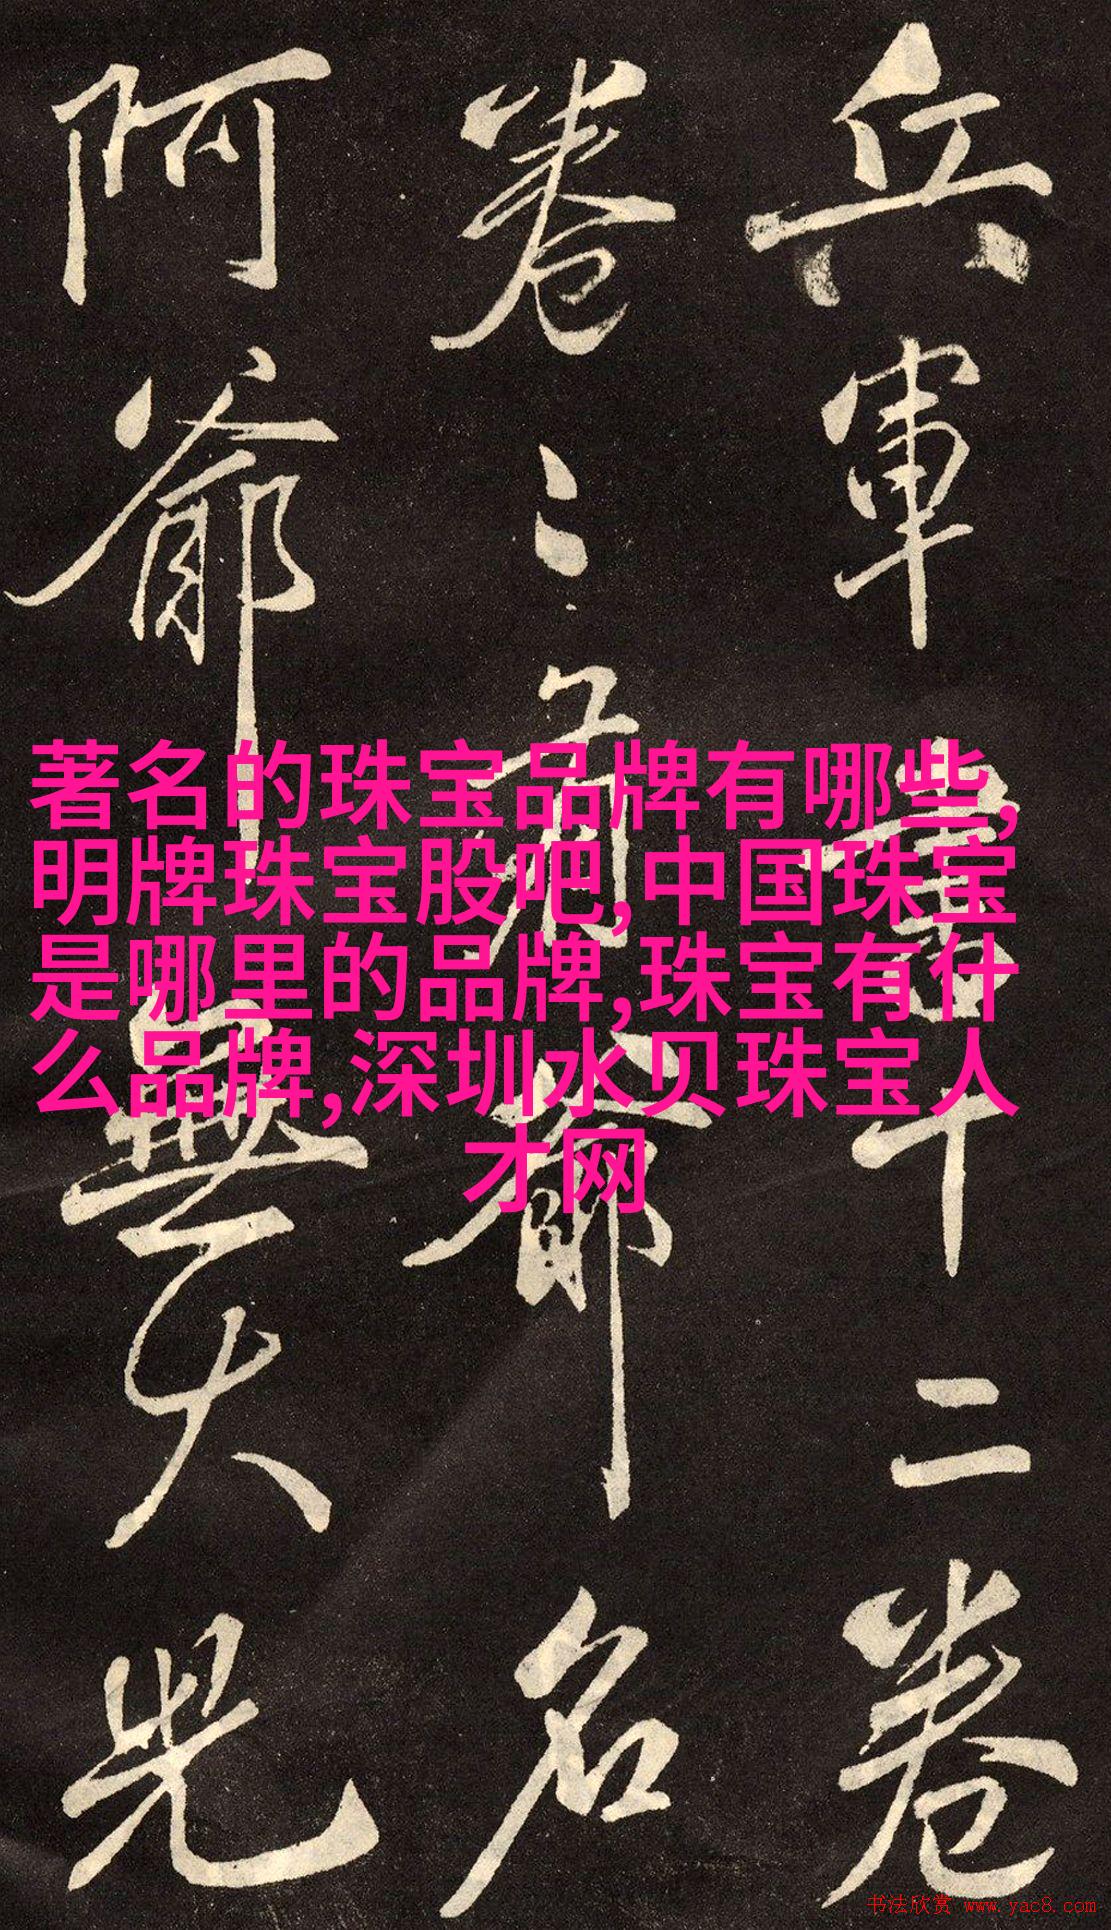 兵軍書十二卷
卷有爺名
阿爺無大兒
著名的珠宝品牌有哪些,
明牌珠宝股吧,中国珠宝
是哪里的品牌,珠宝有什
么品牌,深圳水贝珠宝人
才网
书法欣赏 www.yac8.com